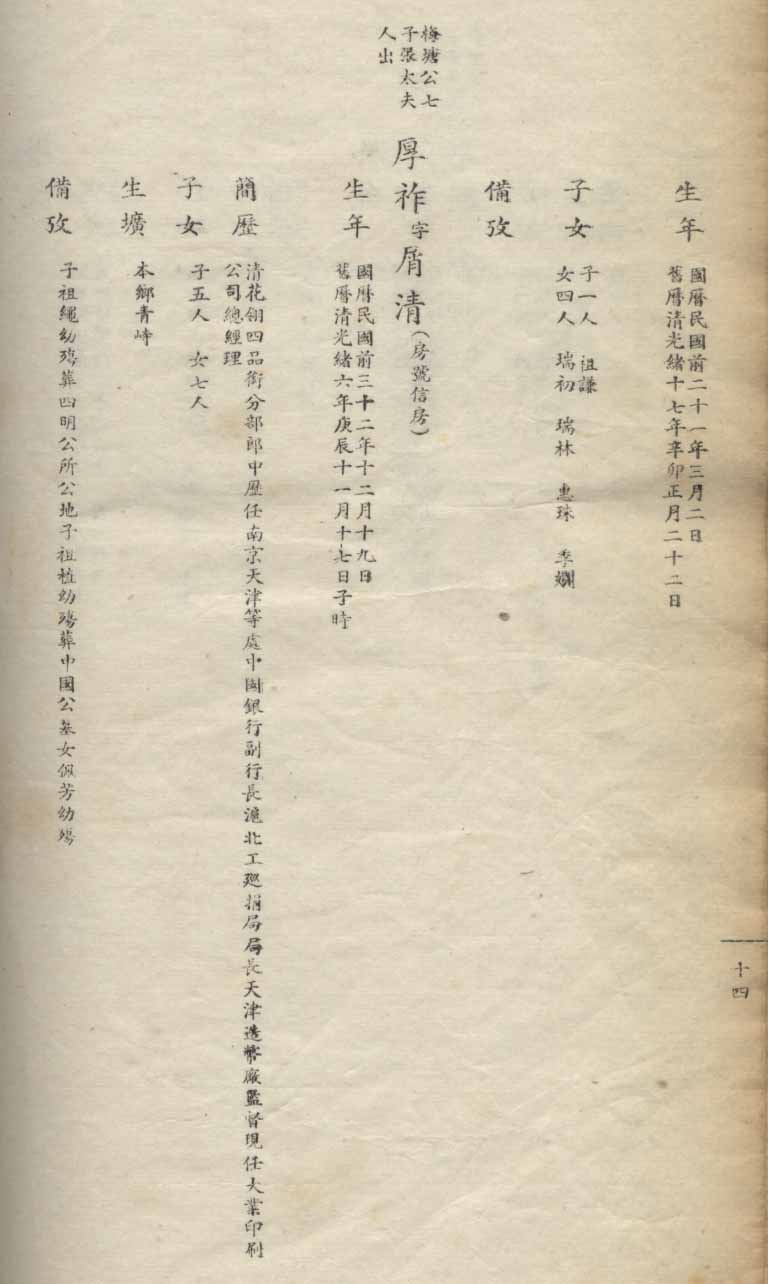 生年
國曆民國前二十一年三月二日
舊曆清光緒十七年辛卯正月二十二日
子女
子一人 祖謙
女四人 瑞初 瑞林 惠珠 季嫻
備攷
梅塘公七
子張太夫
人出
厚祚字屑清(房號信房)
生年
國曆民國前三十二年十二月十九日
舊曆清光緒六年庚辰十一月十七日子時
簡歷
清花翎四品銜分部郎中歷任南京天津等處中國銀行副行長滬北工廵捐局局長天津造幣廠監督現任大業印刷
公司總經理
子女
子五人 女七人
生壙
本鄉青峙
備攷
子祖繩幼殤葬四明公所公地子祖植幼殤葬中國公墓女佩芳幼殤
十四